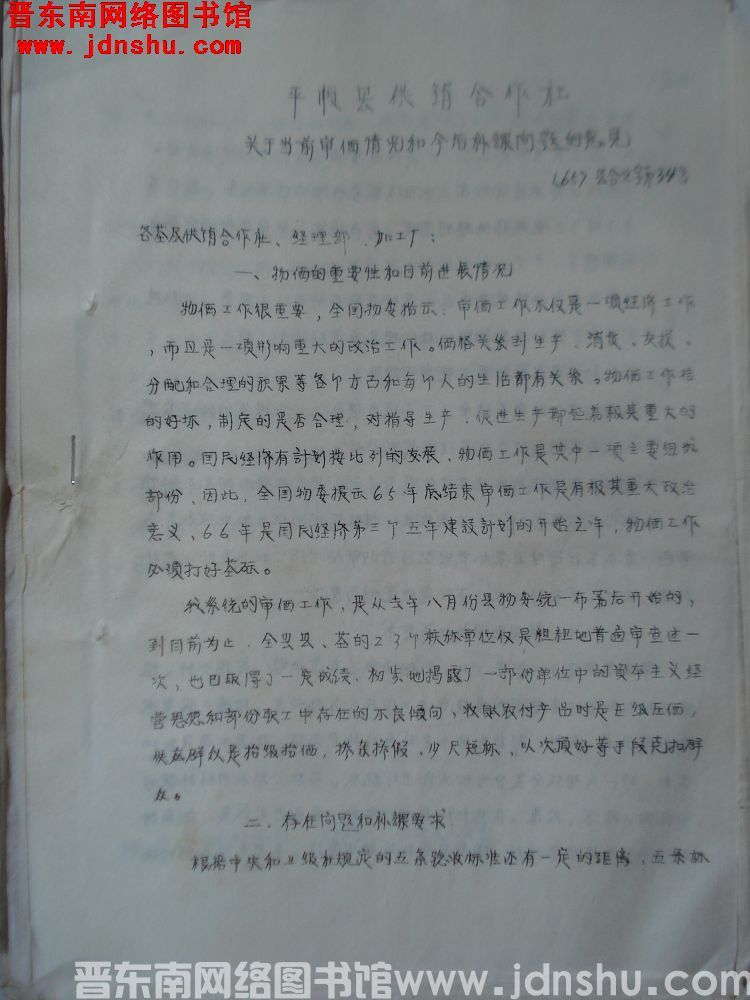 晋东南网络图书馆
www.jdnshu.com
平顺县供销合作社
关于当前审価情况和今后补课问题的意见
(65)县合业字第34号
各基层供销合作社、经理部、加工厂：
一、物価的重要性和目前进展情况
物価工作很重要，全国物委指示：审価工作不仅是一项经济工作
，而且是一项影响重大的政治工作。価格关系到生产、消费、交换、
分配和合理的积累等各个方面和每个人的生活都有关系。物価工作搞
的好坏，制定的是否合理，对指导生产、促进生产都起着极其重大的
作用。国民经济有計划按比列的发展，物価工作是其中一项主要组成
部份，因此，全国物委提示65年底结束审価工作是有极其重大政治
意义，66年是国民经济第三个五年建設計划的开始之年，物価工作
必须打好基础。
我系统的审価工作，是从去年八月份县物委统一布署后开始的，
到目前为止，全县县、基的23个核算单位仅是粗粗地普遍审查过一
次，也已取得了一定成绩，初步地揭露了一部份单位中的资本主义经
营思想和部份职工中存在的不良倾向，收购农付产品时是压级压価，
供应群众是抬级抬価，掺杂掺假、少尺短秤，以次顶好等手段克扣群
众。
二、存在问题和补课要求
根据中央和上级社规定的五条验收标准还有一定的距离，五条标
晋东南网络图书馆www.jdnshu.com